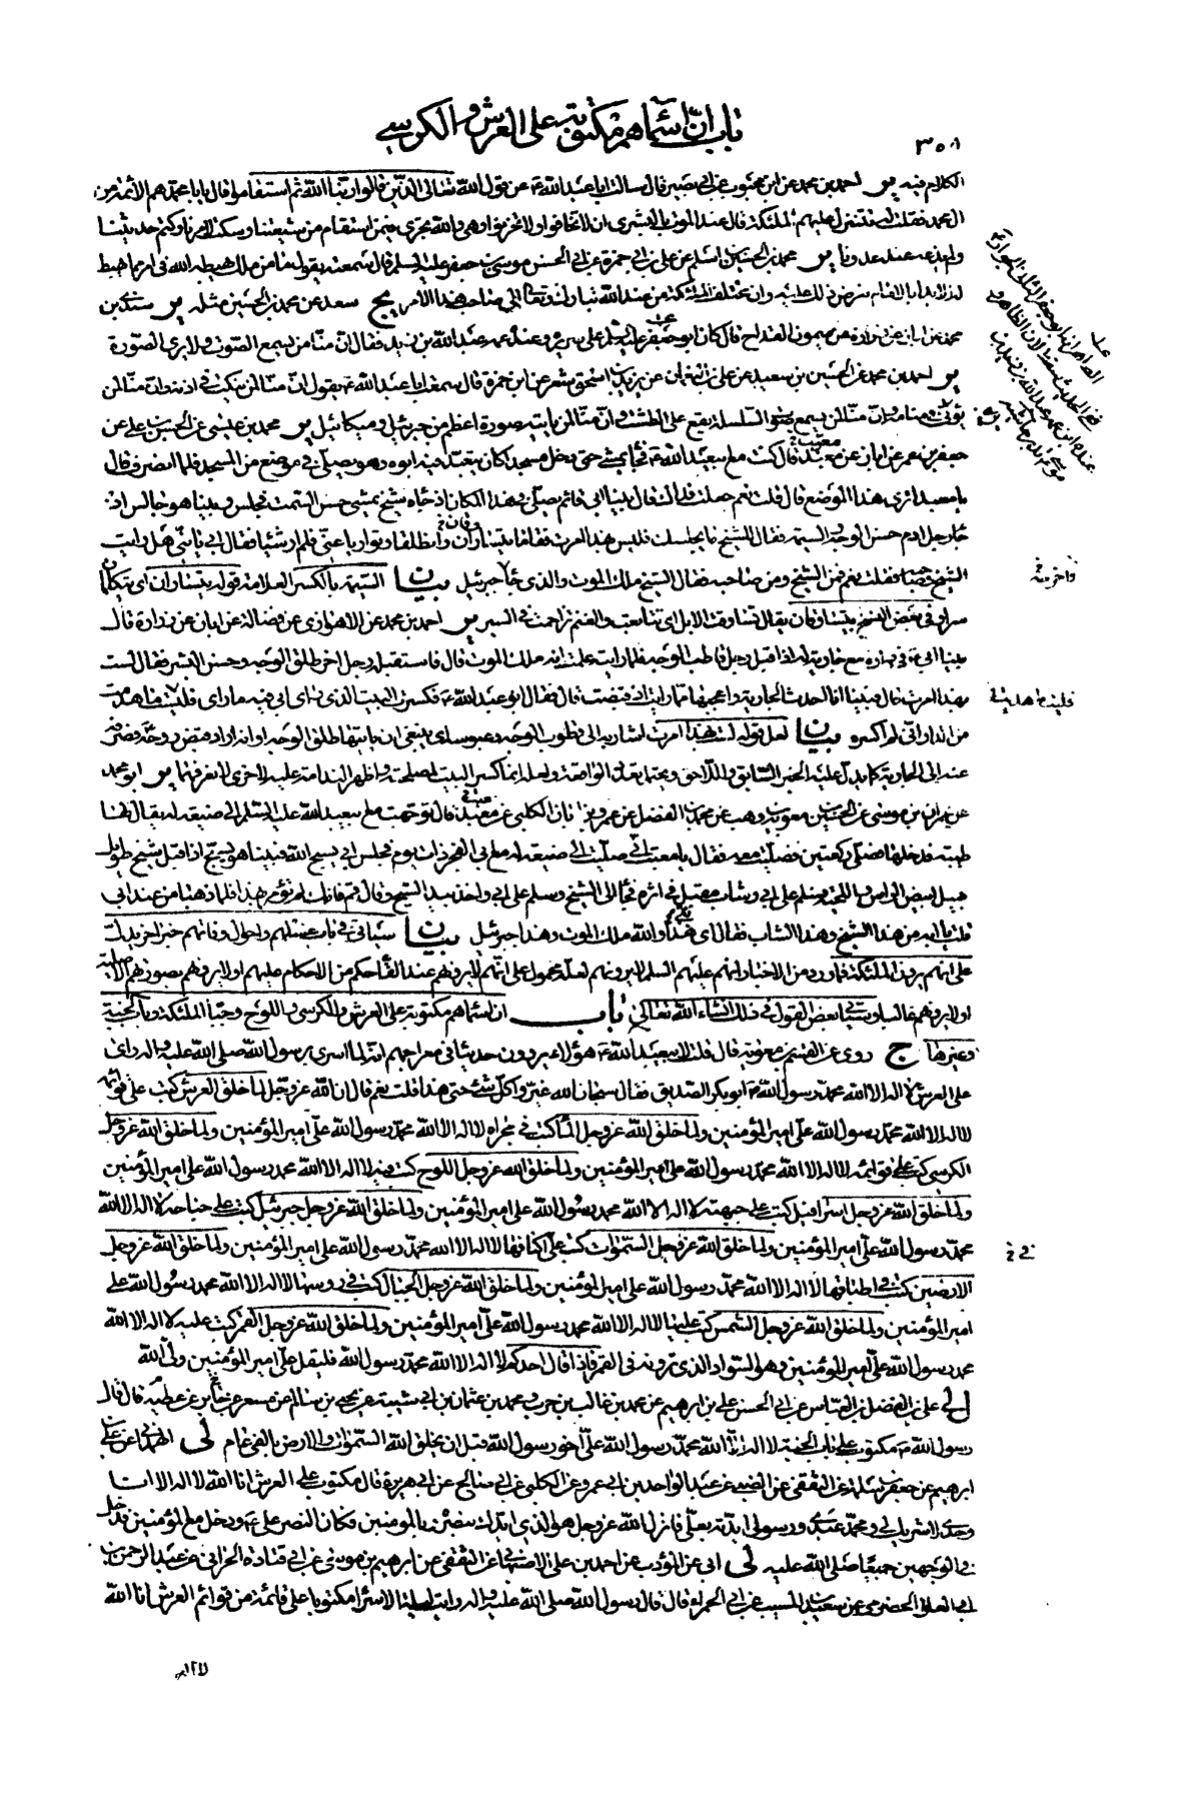 باب ان اسماهم مكتوبة على العرش والكرسي
٣٥٨
الكلام فيه ير احمد بن محمد عن ابن محبوب عن ابي بصير قال سالت ابا عبد الله ع عن قول الله تعالى الذين قالوا ربنا الله ثم استقاموا قال يا با محمد هم الائمة من
ال محمد فقلت تتنزل عليهم الملئكة قال عند الموت بالبشرى ان لا تخافوا ولا تحزنوا وهي والله تجري فيمن استقام من شيعتنا وسكت لامرنا وكتم حديثنا
ولم يذعه عند عدونا ير محمد بن الحسين بن اسلم عن علي بن ابي حمزة عن ابي الحسن موسى بن جعفر عليه السلم قال سمعته يقول ما من ملك يهبطه الله في امر ما يهبط
له الا بدا بالامام يعرض ذلك عليه وان مختلف الملئكة من عند الله تبارك وتعالى الى صاحب هذا الامر يج سعد عن محمد بن الحسين مثله ير
محمد عن ابن ميمون القداح قال كان ابو جعفر عليه السلم على سرير وعنده عمه عبد الله بن زيد فقال ان منا من يسمع الصوت ولا يرى الصورة
ير احمد بن محمد عن الحسين بن سعيد عن علي بن النعمان عن يزيد بن اسحق شعر عن ابن حمزة قال سمعت ابا عبد الله ع يقول ان منا لمن ينكت في اذنه وان منا لمن
يؤتى في منامه وان منا لمن يسمع صوت السلسلة يقع على الطشت وان منا لمن ياتيه صورة اعظم من جبرئيل وميكائيل ير محمد بن عيسى عن الحسين بن علي عن
جعفر بن عمر عن ابان عن معبد قال كنت مع ابي عبد الله ع فجا يمشي حتى دخل مسجدا كان يتعبد فيه ابوه وهو يصلي في موضع من المسجد فلما انصرف قال
يا معبد اترى هذا الموضع قال قلت نعم جعلت فداك قال بينا ابي قائم يصلي في هذا المكان اذ جاه شيخ يمشي حسن السمت فجلس فبينا هو جالس اذ
جا رجل ادم حسن الوجه والسيمة فقال للشيخ ما يجلسك فليس بهذا امرت فقاما يتساران وانطلقا وتواريا عني فلم ار شيئا فقال ابي يا بني هل رايت
الشيخ وصاحبه فقلت نعم فمن الشيخ ومن صاحبه فقال الشيخ ملك الموت والذي جا جبرئيل بيان السيمة بالكسر العلامة قوله يتساران اي يتكلمان
سرا وفي بعض النسخ يتساوقان يقال تساوقت الابل اي تتابعت والغنم تزاحمت في السير ير احمد بن محمد عن الاهوازي عن فضالة عن ابان عن زرارة قال
بينا ابي ع في داره مع جارية له اذ اقبل رجل قاطب الوجه فلما رايته علمت انه ملك الموت قال فاستقبله رجل اخر طلق الوجه وحسن البشر فقال لست
بهذا امرت قال فبينا انا احدث الجارية واعجبها مما رايت اذ قبضت قال فقال ابو عبد الله ع فكسرت البيت الذي راى ابي فيه ما راى فليت ما هدمت
من الدار اني لم اكسره بيان لعل قوله لست بهذا امرت اشارة الى قطوب الوجه وعبوسه اي ينبغي ان ياتيها طلق الوجه او انه اراد قبض روحه ع
عن عمران بن موسى عن الحسين بن معوية بن وهب عن محمد بن الفضل عن عمرو بن ابان الكلبي عن معتب قال توجهت مع ابي عبد الله عليه السلم الى ضيعة له يقال لها
طيبة فدخلها فصلى ركعتين فصليت معه فقال يا معتب اني صليت مع ابي الفجر ذات يوم فجلس ابي يسبح الله فبينا هو يسبح اذ اقبل شيخ طوال
جميل ابيض الراس واللحية فسلم على ابي وشاب مقبل في اثره فجا الى الشيخ وسلم على ابي واخذ بيد الشيخ وقال قم فانك لم تؤمر بهذا فلما ذهبا من عند ابي
قلت يا ابه من هذا الشيخ وهذا الشاب فقال اي هذا والله ملك الموت وهذا جبرئيل بيان سياتي في باب
على انهم يرون الملئكة فما ورد من الاخبار انهم عليهم السلم لا يرونهم لعله محمول على انهم لا يرونهم عند القا حكم من الاحكام عليهم او لا يرونهم بصورهم الاصلية
او لا يرونهم غالبا وسياتي بعض القول في ذلك انشاء الله تعالى باب ان اسماهم مكتوبة على العرش والكرسي واللوح وجباه الملئكة وباب الجنة
وغيرها ج روى عن القسم بن معوية قال قلت لابي عبد الله ع هؤلاء يروون حديثا في معراجهم انه لما اسري برسول الله صلى الله عليه واله راى
على العرش لا اله الا الله محمد رسول الله ابو بكر الصديق فقال سبحان الله غيروا كل شيء حتى هذا قلت نعم قال ان الله عز وجل لما خلق العرش كتب على قوائمه
لا اله الا الله محمد رسول الله علي امير المؤمنين ولما خلق الله عز وجل الماء كتب في مجراه لا اله الا الله محمد رسول الله علي امير المؤمنين ولما خلق الله عز وجل
الكرسي كتب على قوائمه لا اله الا الله محمد رسول الله علي امير المؤمنين ولما خلق الله عز وجل اللوح كتب فيه لا اله الا الله محمد رسول الله علي امير المؤمنين
ولما خلق الله عز وجل اسرافيل كتب على جبهته لا اله الا الله محمد رسول الله علي امير المؤمنين ولما خلق الله عز وجل جبرئيل كتب على جناحه لا اله الا الله
محمد رسول الله علي امير المؤمنين ولما خلق الله عز وجل السموات كتب على اكنافها لا اله الا الله محمد رسول الله علي امير المؤمنين ولما خلق الله عز وجل
الارضين كتب في اطباقها لا اله الا الله محمد رسول الله علي امير المؤمنين ولما خلق الله عز وجل الجبال كتب في روسها لا اله الا الله محمد رسول الله علي
امير المؤمنين ولما خلق الله عز وجل الشمس كتب عليها لا اله الا الله محمد رسول الله علي امير المؤمنين ولما خلق الله عز وجل القمر كتب عليه لا اله الا الله
محمد رسول الله علي امير المؤمنين وهو السواد الذي ترونه في القمر فاذا قال احدكم لا اله الا الله محمد رسول الله فليقل علي امير المؤمنين ولي الله
لي علي بن الفضل بن العباس عن ابي الحسن علي بن ابرهيم عن محمد بن غالب بن حرب ومحمد بن عثمان بن ابي شيبة عن يحيى بن سالم عن مسعر عن جابر عن عطية قال قال
رسول الله ص مكتوب على باب الجنة لا اله الا الله محمد رسول الله علي اخو رسول الله قبل ان يخلق الله السموات والارض بالفي عام لي الهمداني عن علي بن
ابرهيم عن جعفر بن سلمة عن الثقفي عن الضبي عن عبد الواحد بن ابي عمرو عن الكلبي عن ابي صالح عن ابي هريرة قال مكتوب على العرش انا الله لا اله الا انا
وحدي لا شريك لي ومحمد عبدي ورسولي ايدته بعلي فانزل الله عز وجل هو الذي ايدك بنصره وبالمؤمنين فكان النصر علي ع ودخل مع المؤمنين فدخل
في الوجهين جميعا صلى الله عليه لي ابي عن المؤدب عن احمد بن علي الاصبهاني عن الثقفي عن ابرهيم بن موسى عن ابي قتادة الحراني عن عبد الرحمن بن
ابي العلا الحضرمي عن سعيد بن المسيب عن ابي الحمراء قال قال رسول الله صلى الله عليه واله رايت ليلة الاسرا مكتوبا على قائمة من قوائم العرش انا الله